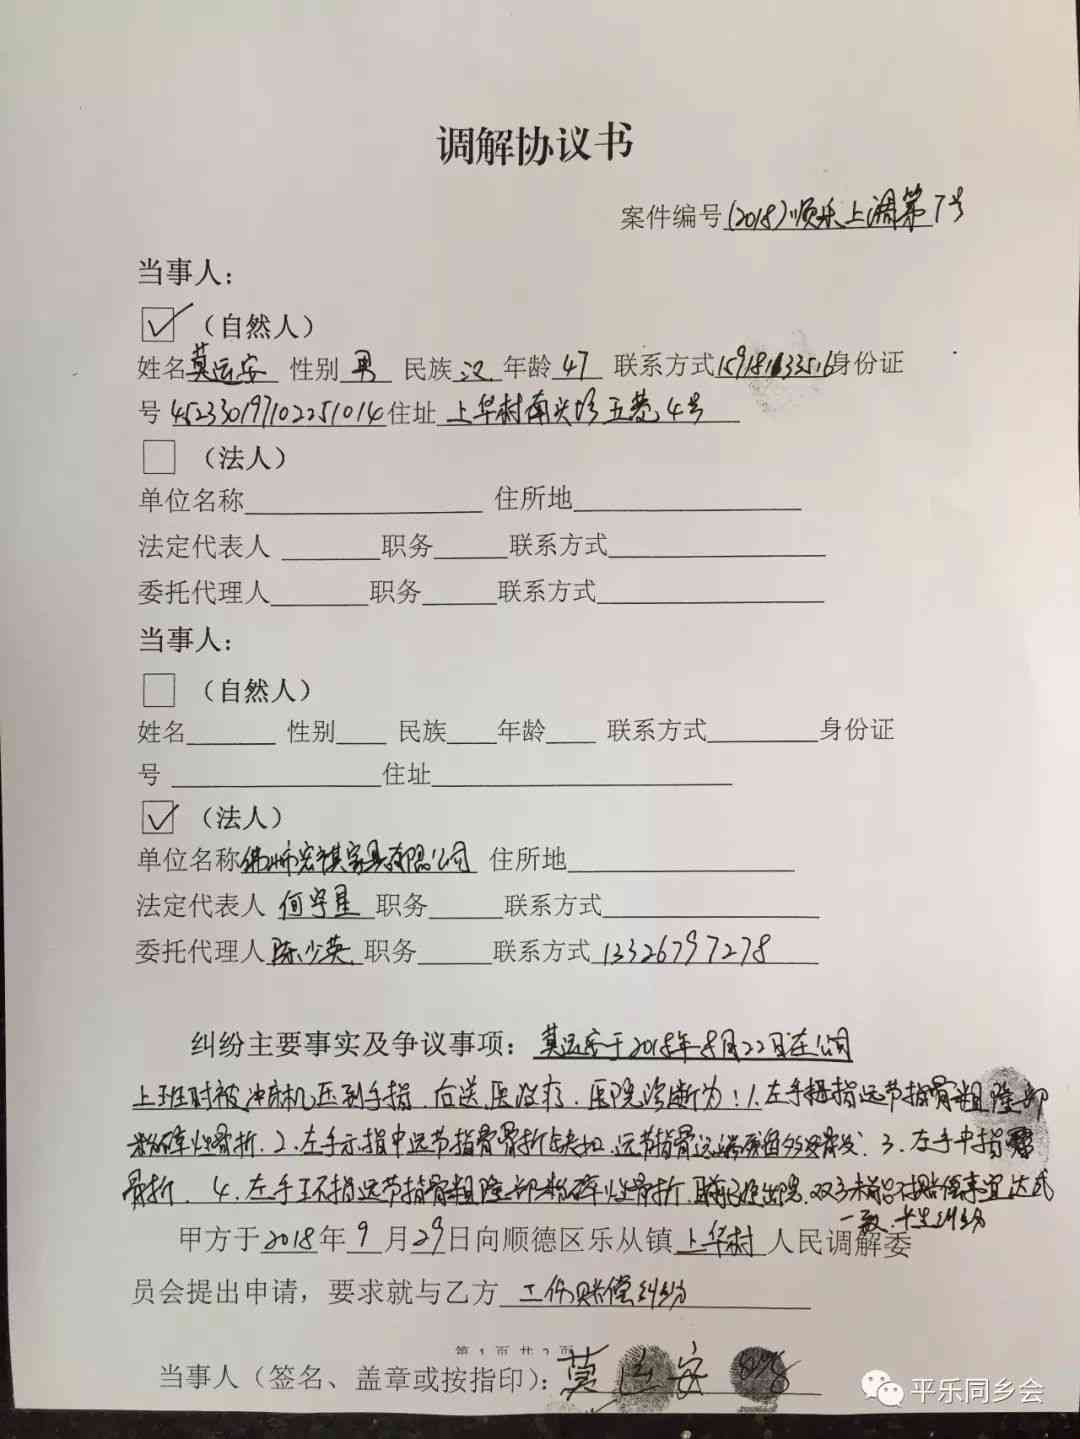 调解协议书
案件编号(2018)顺乐上调第7号
当事人：
（自然人）
姓名莫运安 性别男 民族汉 年龄47 联系方式15918133516身份证
号 452330197102251014住址 上华村南兴坊五巷4号
（法人）
单位名称 住所地
法定代表人 职务 联系方式
委托代理人 职务 联系方式
当事人：
（自然人）
姓名 性别 民族 年龄 联系方式 身份证
号 住址
（法人）
单位名称佛山市宏祺家具有限公司 住所地
法定代表人 何守星 职务 联系方式
委托代理人陈少英 职务 联系方式 13326797278
纠纷主要事实及争议事项：莫运安于2018年8月22日在公司
上班时被冲床机压到手指，后送医治疗，医院诊断为：1.左手拇指远节指骨粗隆部
粉碎性骨折．2．左手示指中远节指骨骨折缺损．远节指骨远端 ．3．左手中指
骨折．4．左手环指远节指骨粗隆部粉碎性骨折． 出院．双方未能 赔偿事宜达成
一致．
甲方于2018年9月29日向顺德区乐从镇上华村人民调解委
员会提出申请，要求就与乙方 工伤赔偿纠纷
第 1 页 共 2 页
当事人（签名、盖章或按指印）：莫运安
平乐同乡会